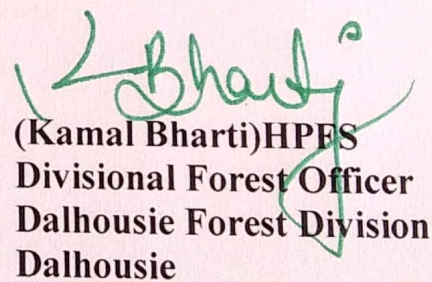 K Bharti
(Kamal Bharti)HPFS
Divisional Forest Officer
Dalhousie Forest Division
Dalhousie